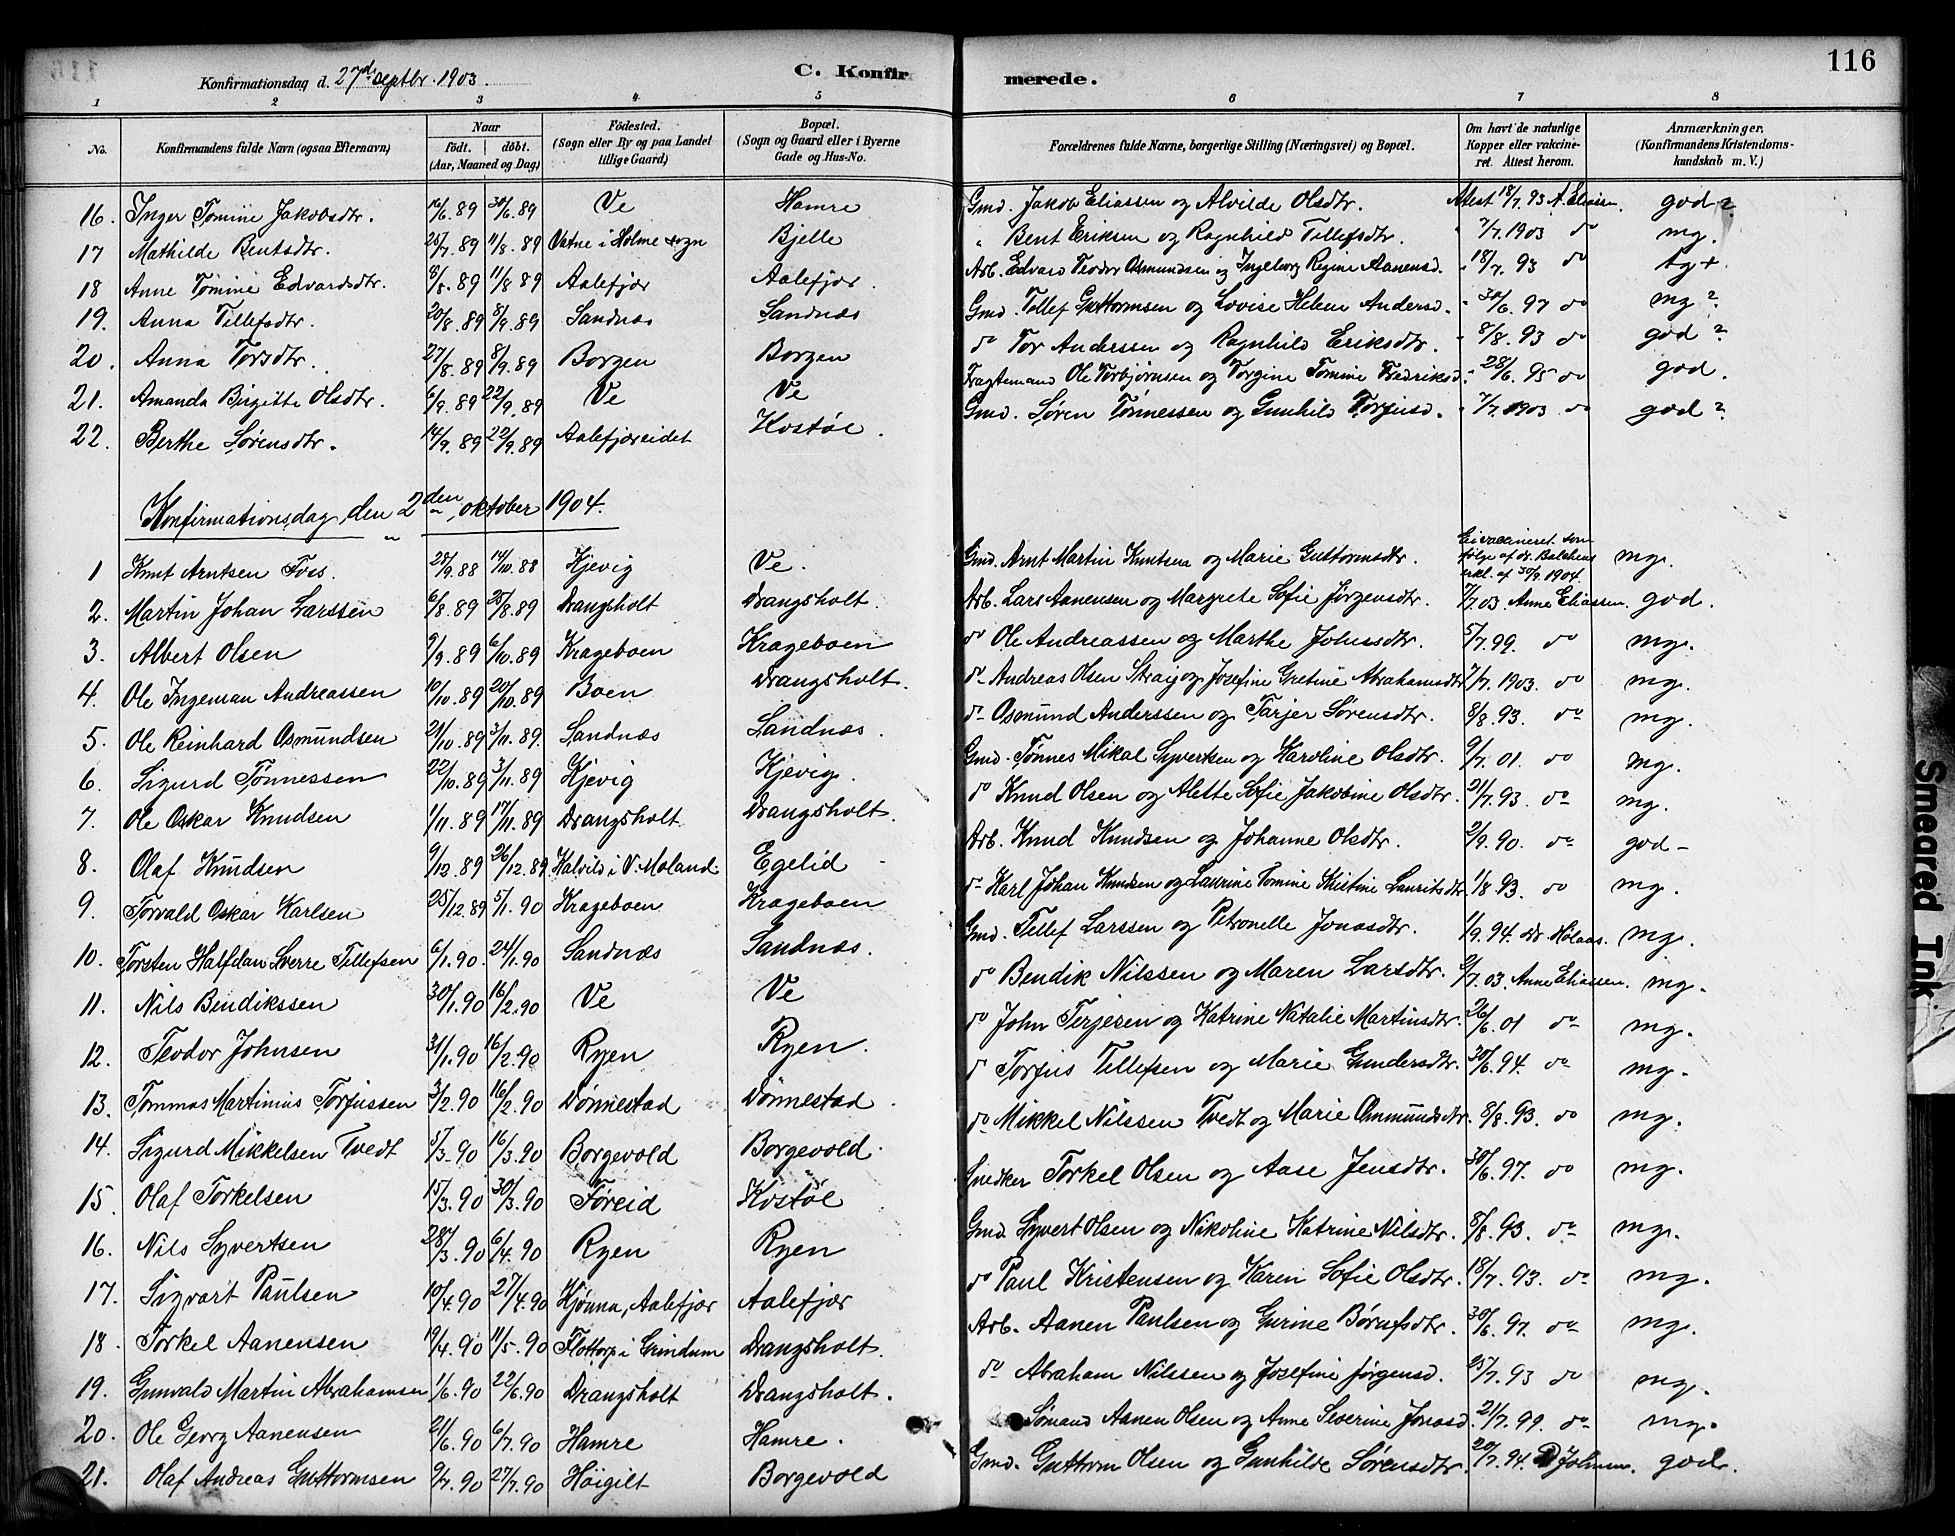 116
Konfirmationsdag d. 27de septbr. 1903. C. Konfirmerede.
1 2 3 4 5 6 7 8
No. Konfirmandens fulde Navn (ogsaa Efternavn) Naar født. døbt. (Aar, Maaned og Dag) Fødested. (Sogn eller By og paa Landet tillige Gaard) Bopæl. (Sogn og Gaard eller i Byerne Gade og Hus-No. Forældrenes fulde Navne, borgerlige Stilling (Næringsvei) og Bopæl. Om havt de naturlige Kopper eller vakcineret. Attest herom. Anmærkninger. (Konfirmandens Kristendomskundskab m. V.)
16. Inger Tomine Jakobsdtr. 16/6.89 30/6.89 Ve Hamre Gmd. Jakob Eliassen og Alvilde Olsdtr. Attest 18/7.93 A. Eliassen. god?
17 Mathilde Bentsdtr. 25/7.89 11/8.89 Vatne i Holme sogn Bjelle " Bent Eriksen og Ragnhild Tillefsdtr. " 7/7.1903 do mg.
18 Anne Tomine Edvardsdtr. 8/8.89 11/8 89 Aalefjær Aalefjær. Arb. Edvard Teodor Osmundsen og Ingeborg Regine Aanensd. " 18/7.93 do tg+
19. Anna Tillefsdtr. 20/8.89 8/9.89 Sandnæs Sandnæs Gmd. Tillef Guttormsen og Lovise Helene Andersd. " 30/6.97 do mg?
20. Anna Torsdtr. 27/8.89 8/9.89 Borgen Borgen do Tor Anderssen og Ragnhild Eriksdtr. " 8/8.93 do god?
21. Amanda Birgitte Olsdtr. 6/9.89 22/9.89 Ve Ve Fragtemand Ole Torbjørnsen og Torgine Tomine Fredriksd. " 28/6.95 do god.
22. Berthe Sørensdtr. 14/9.89 22/9.89 Aalefjæreidet Kostøl. Gmd. Søren Tønnessen og Gunhild Torjusd. " 7/7.1903 do god?
Konfirmationsdag den 2den oktober 1904.
1 Knut Arntsen Foss. 28/9.88 14/10.88 Kjevig Ve. Gmd. Arnt Martin Knutsen og Marie Guttormsdtr. Ei vaccineret som følge af dr. Balchens erkl. af 30/9.1904. mg.
2. Martin Johan Larssen 6/8.89 25/8.89 Drangsholt Drangsholt. Arb. Lars Aanensen og Margrete Sofie Jørgensdtr. 7/7.03 Anne Eliassen. god.
3. Albert Olsen 9/9.89 6/10.89 Krageboen Krageboen do Ole Andreassen og Marthe Johnsdtr. 5/7.99. do mg.
4. Ole Ingeman Andreassen 10/10.89 20/10.89 Boen Drangsholt. do Andreas Olsen Straig og Josefine Gretine Abrahamsdtr. 7/7.1903. do mg.
5. Ole Reinhard Osmundsen 21/10.89 3/11.89. Sandnæs Sandnæs. do Osmund Anderssen og Tarjer Sørensdtr. 8/8.93. do mg.
6. Sigurd Tønnessen 22/10.89 3/11.89 Kjevig Kjevig. Gmd. Tønnes Mikal Syvertsen og Karoline Olsdtr. 9/7.01 do mg.
7. Ole Oskar Knudsen 1/11.89 17/11.89 Drangsholt Drangsholt. do Knud Olsen og Alette Sofie Jakobine Olsdtr. 21/7.93. do mg.
8. Olaf Knudsen 9/12.89 26/12.89 Kalvild i V. Moland. Egelid Arb. Knud Knudsen og Johanne Olsdtr. 2/9.90. do god-
9. Torvald Oskar Karlsen 25/12.89 5/1.90 Krageboen Krageboen do Karl Johan Knudsen og Laurine Tomine Kristine Lauritsdtr. 1/8.93. do mg.
10. Torsten Halfdan Sverre Tillefsen 6/1.90. 24/1.90 Sandnæs Sandnæs. Gmd. Tillef Larssen og Petronelle Jonasdtr. 1/9.94. dr. Hølaas. mg.
11. Nils Bendikssen 30/1.90 16/2.90 Ve Ve do Bendik Nilssen og Maren Larsdtr. 9/7.03. Anne Eliassen. mg.
12. Teodor Johnsen 31/1.90 16/2.90 Ryen Ryen. do John Terjesen og Katrine Natalie Martinsdtr. 26/6.01 do mg.
13. Tommas Martinius Torjussen 3/2.90 16/2.90 Dønnestad Dønnestad. do Torjus Tillefsen og Marie Gundersdtr. 30/6.94. do mg.
14. Sigurd Mikkelsen Tvedt 5/3.90 16/3.90 Borgevold Borgevold. do Mikkel Nilssen Tvedt og Marie Osmundsdtr. 8/8.93. do mg.
15. Olaf Torkelsen 15/3.90 30/3.90 Foreid Kostøl Snedker Torkel Olsen og Aase Jensdtr. 30/6.97. do mg.
16. Nils Syvertsen 28/3.90 6/4.90 Ryen Ryen Gmd. Syvert Olsen og Nikoline Katrine Nilsdtr. 8/8.93. do mg.
17. Sigvart Paulsen 10/4.90 27/4.90 Kjønna, Aalefjær Aalefjær do Paul Kristensen og Karen Sofie Olsdtr. 18/7.93. do mg.
18. Torkel Aanensen 19/4.90 11/5.90 Flottorp i Grindum Drangsholt. Arb. Aanen Paulsen og Gurine Børufsdtr. 30/6.97. do mg.
19. Gunvald Martin Abrahamsen 1/6.90 22/6.90 Drangsholt Drangsholt. do Abraham Nilssen og Josefine Jørgensd. 25/7.93 do mg.
20. Ole Georg Aanensen 21/6.90 6/7.90 Hamre Hamre. Sømand Aanen Olsen og Anne Severine Jonasd. 21/7.99. do mg.
21. Olaf Andreas Guttormsen 9/7.90 27/7.90 Høigilt Borgevold Gmd. Guttorm Olsen og Gunhilde Sørensdtr. 20/7.94. Johnsen. god.
Smeared Ink